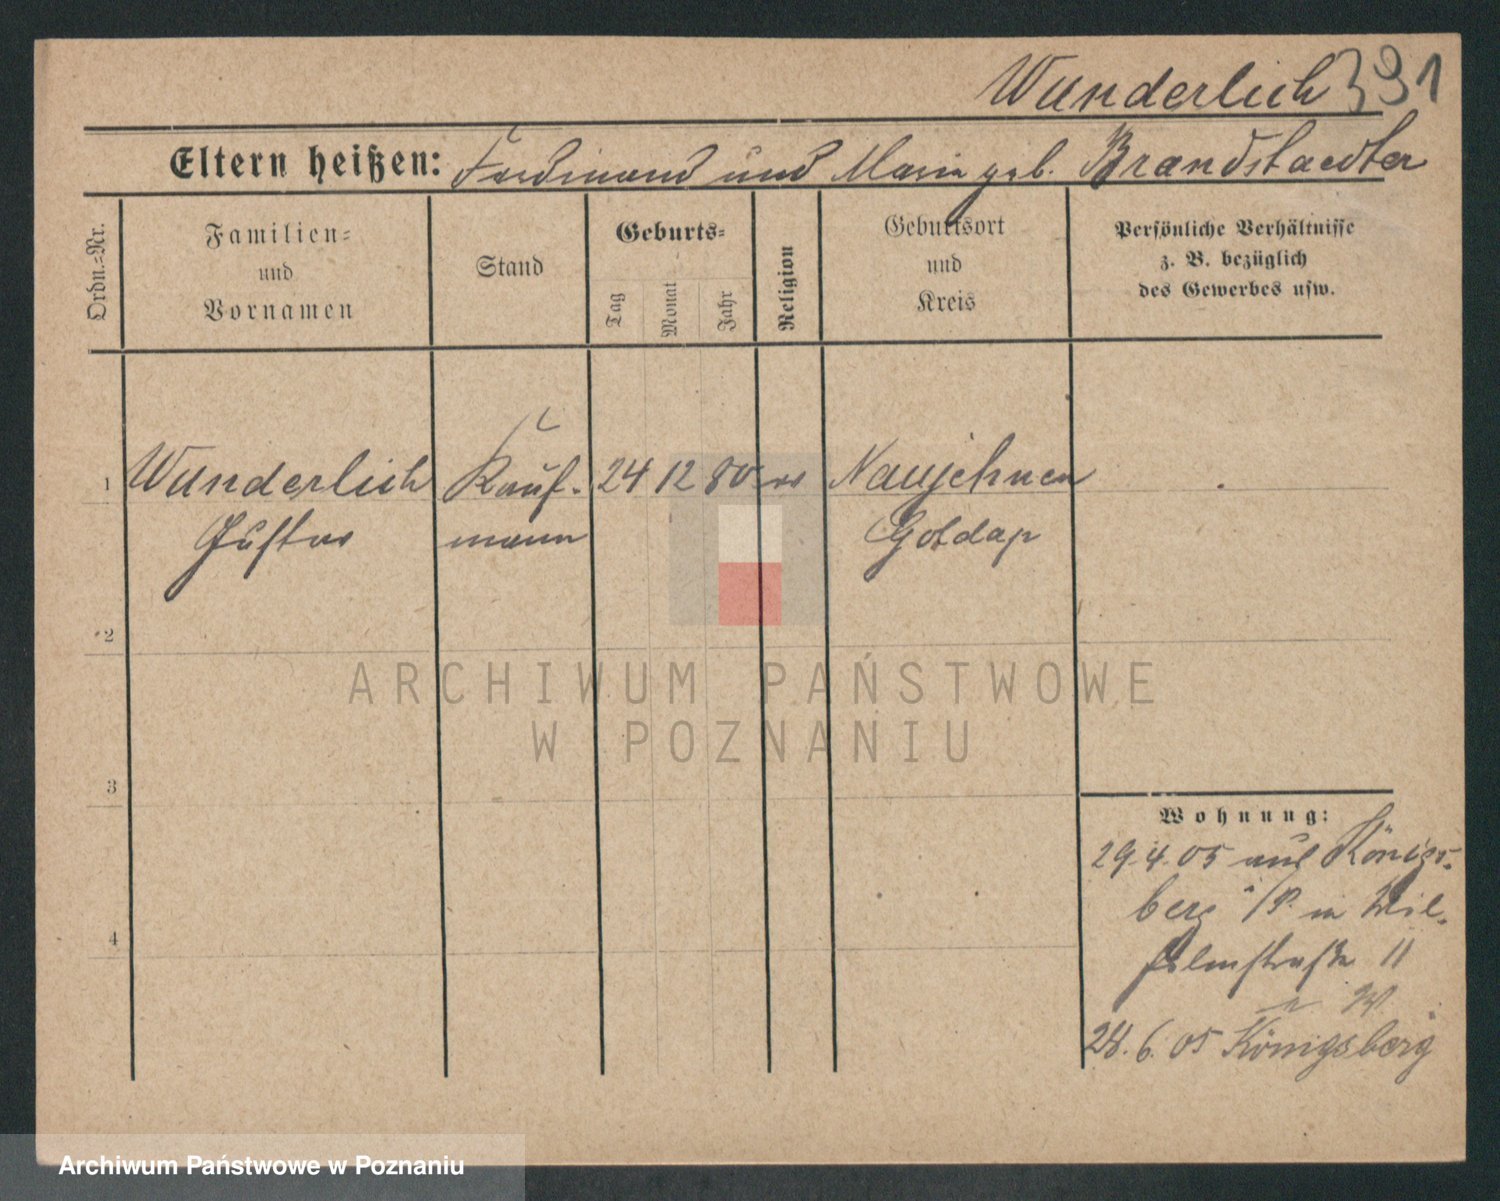 Wunderlich 391
Eltern heißen: Ferdinand und Marie geb. Brandstaedter
Ordn.=Nr.
Familien=
und
Vornamen
Stand
Geburts=
Tag
Monat
Jahr
Religion
Geburtsort
und
Kreis
Persönliche Verhältnisse
z. B. bezüglich
des Gewerbes usw.
1 Wunderlich Kauf- 24 12 80 Naujehnen
Gustav mann Goldap
2
ARCHIWUM PAŃSTWOWE
W POZNANIU
3
Wohnung:
29.4.05 aus Königs-
berg i/P. in Wil-
helmstraße 11
4
28.6.05 Königsberg
Archiwum Państwowe w Poznaniu